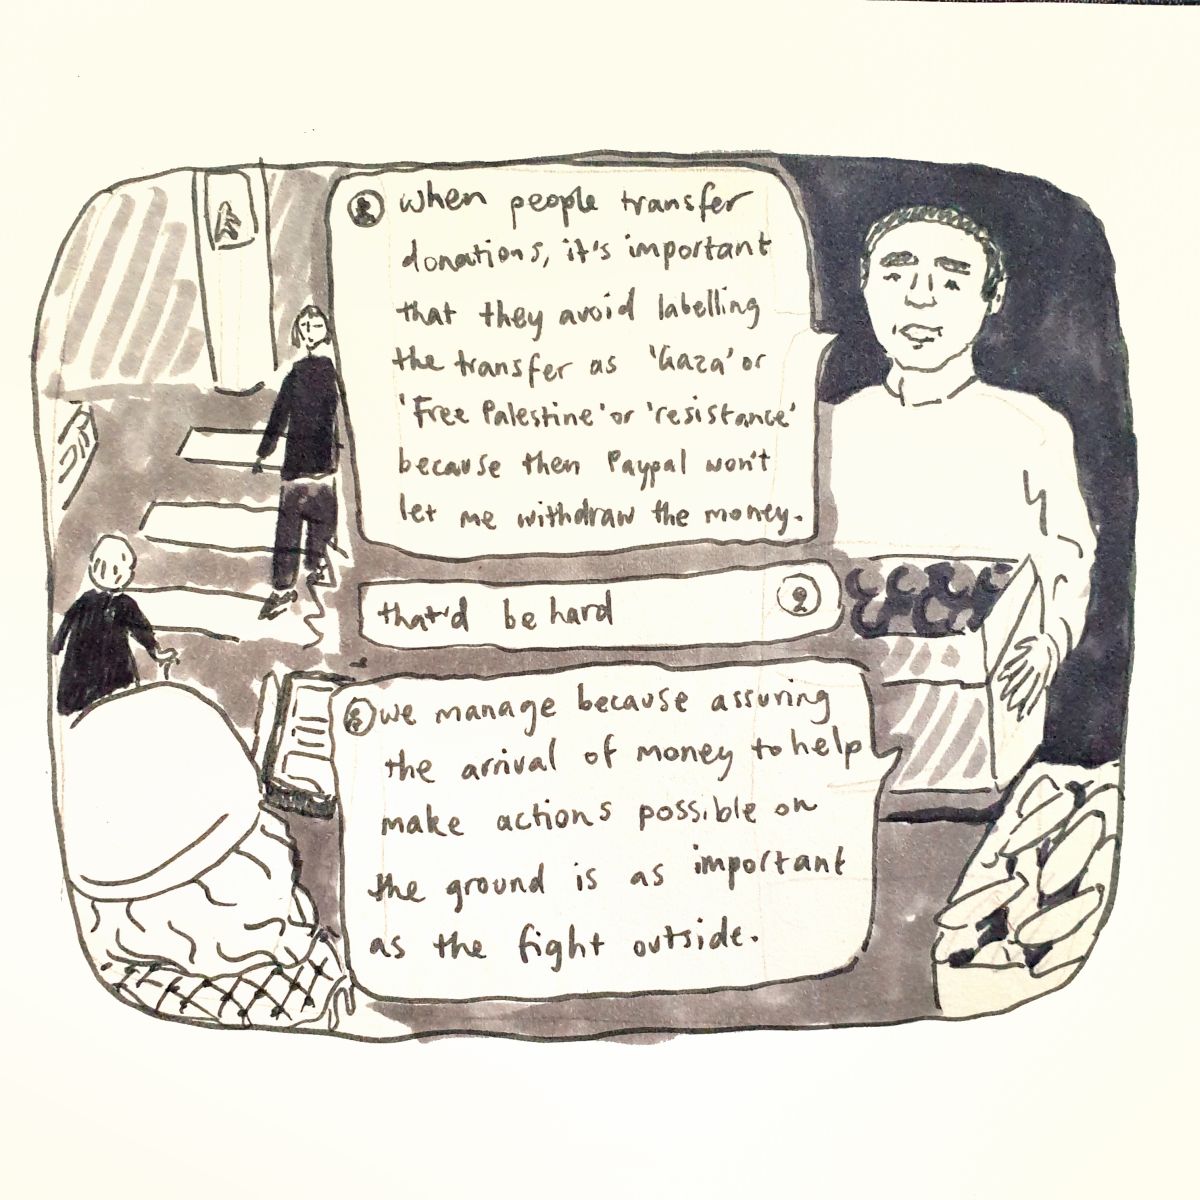 when people transfer
donations, it's important
that they avoid labelling
the transfer as 'Gaza' or
'Free Palestine' or 'resistance'
because then Paypal won't
let me withdraw the money.
that'd be hard
we manage because assuring
the arrival of money to help
make actions possible on
the ground is as important
as the fight outside.